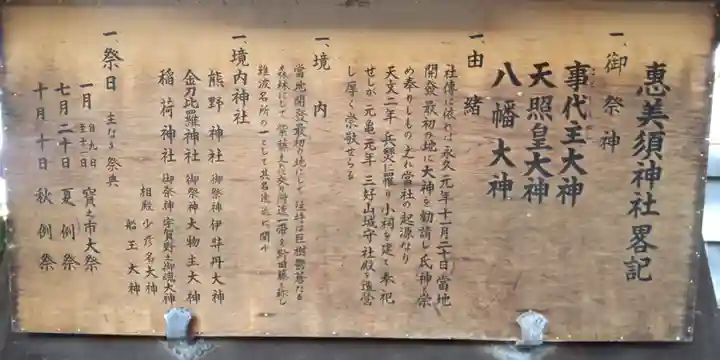 惠美須神社畧記
一、御祭神
事代主大神
天照皇大神
八幡大神
一、由緒
社傳に依れば永久元年十一月二十日當地
開發最初の地に大神を勸請し氏神と崇
め奉りしもの之れ當社の起源なり
天文二年 兵燹に罹り小祠を建て奉祀
せしが 元亀元年 三好山城守社殿を造営
し厚く崇敬せらる
一、境内
當地開發最初の地にして 往時は巨樹鬱蒼たる
森林にして 紫藤も之れ多く 附近一帯を野田藤と称し
難波名所の一として其名遠近に聞ゆ
一、境内神社
熊野神社 御祭神 伊弉冉大神
金刀比羅神社 御祭神 大物主大神
稲荷神社 御祭神 宇賀野主御魂大神
相殿 少彦名大神
船玉大神
一、祭日 主なる祭典
一月 自九日 至十一日 寳之市大祭
七月二十日 夏例祭
十月二十日 秋例祭